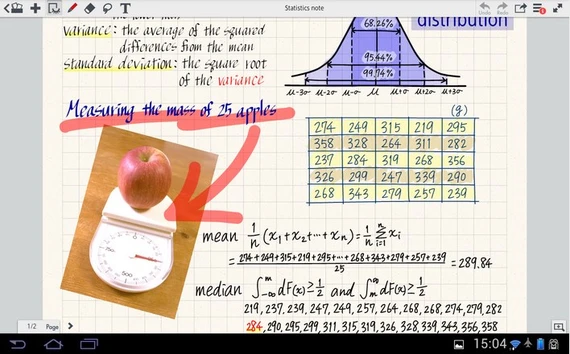 Statistics note
variance: the average of the squared
differences from the mean
standard deviation: the square root
of the variance
distribution
68.26%
95.44%
99.74%
μ-3σ μ-2σ μ-σ μ μ+σ μ+2σ μ+3σ
Measuring the mass of 25 apples
(g)
274 249 315 219 295
358 328 264 311 282
237 284 319 268 356
326 299 247 339 290
268 343 279 257 239
mean 1/n (x₁+x₂+…+xₙ) = 1/n Σⁿᵢ₌₁ xᵢ
= 274+249+315+219+295+…+268+343+279+257+239/25 = 289.84
median ∫ᵐ₋∞ dF(x) ≥ 1/2 and ∫∞ₘ dF(x) ≥ 1/2
219, 237, 239, 247, 249, 257, 264, 268, 268, 274, 279, 282
284, 290, 295, 299, 311, 315, 319, 326, 328, 339, 343, 356, 358
1/2 Page
15:04